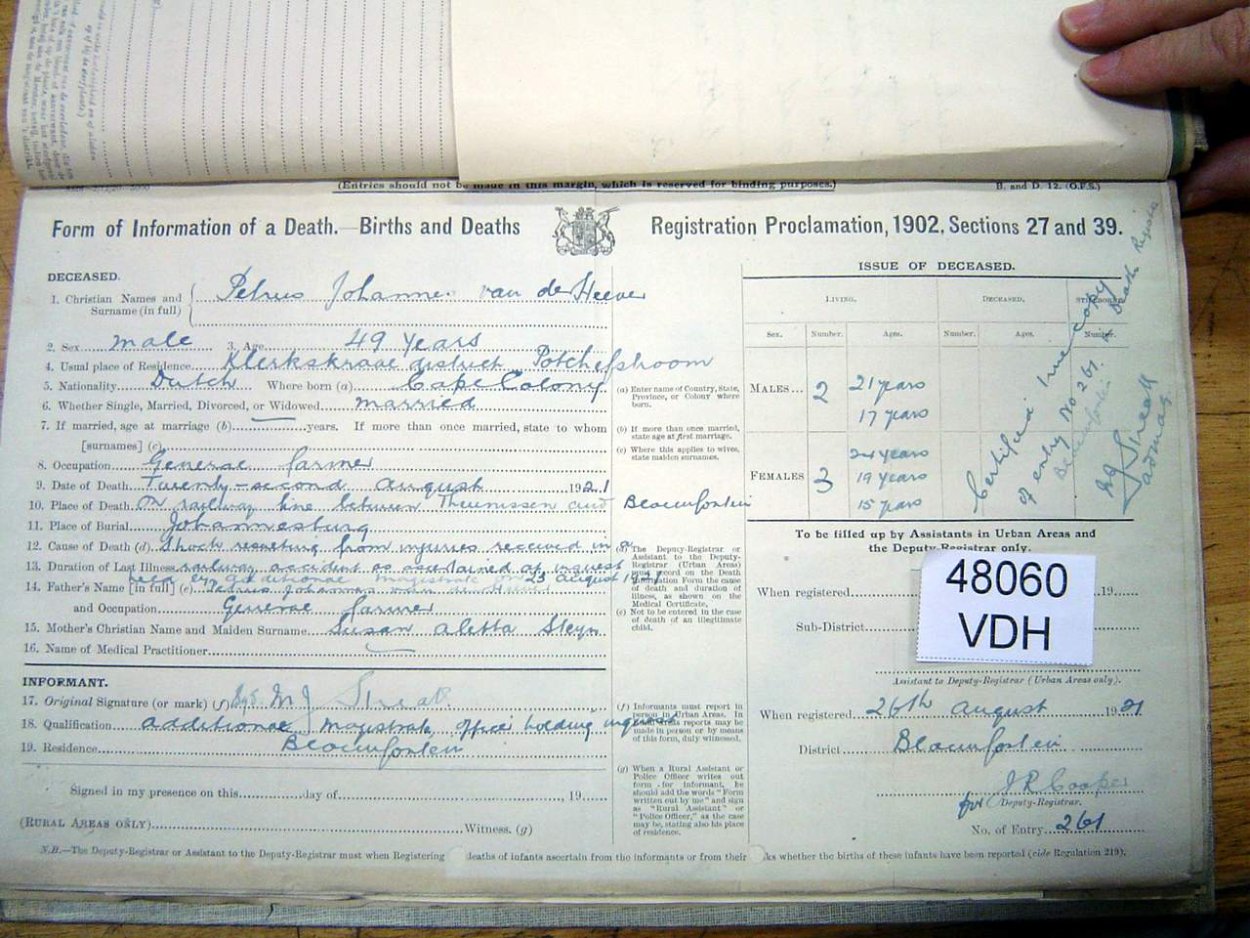 (Entries should not be made in this margin, which is reserved for binding purposes.)
B. and D. 12. (O.F.S.)
Form of Information of a Death.—Births and Deaths Registration Proclamation, 1902, Sections 27 and 39.
DECEASED.
1. Christian Names and Surname (in full) Petrus Johannes van der Heever
2. Sex male 3. Age 49 years
4. Usual place of Residence Klerkskraal district Potchefstroom
5. Nationality Dutch Where born (a) Cape Colony
6. Whether Single, Married, Divorced, or Widowed married
7. If married, age at marriage (b) years. If more than once married, state to whom
[surnames] (c)
8. Occupation General farmer
9. Date of Death Twenty-second august 1921
10. Place of Death On railway line between Theunissen and Bloemfontein
11. Place of Burial Johannesburg
12. Cause of Death (d) Shock resulting from injuries received in a
13. Duration of Last Illness railway accident as ascertained at inquest
held by additional magistrate on 23 august 1921
14. Father's Name [in full] (e) Petrus Johannes van der Heever
and Occupation General farmer
15. Mother's Christian Name and Maiden Surname Susan Aletta Steyn
16. Name of Medical Practitioner
INFORMANT.
17. Original Signature (or mark) (f) Sgd. M J
18. Qualification additional magistrate officer holding inquest
19. Residence Bloemfontein
Signed in my presence on this day of , 19
(RURAL AREAS ONLY) Witness. (g)
(a) Enter name of Country, State, Province, or Colony where born.
(b) If more than once married, state age at first marriage.
(c) Where this applies to wives, state maiden surnames.
(d) The Deputy-Registrar or Assistant to the Deputy-Registrar (Urban Areas) must record on the Death Information Form the cause of death and duration of illness, as shown on the Medical Certificate.
(e) Not to be entered in the case of death of an illegitimate child.
(f) Informants must report in person in Urban Areas. In reports may be made in person or by means of this form, duly witnessed.
(g) When a Rural Assistant or Police Officer writes out form for informant, he should add the words "Form written out by me" and sign as "Rural Assistant" or "Police Officer," as the case may be, stating also his place of residence.
ISSUE OF DECEASED.
LIVING. DECEASED. STILLBORN
Sex. Number. Ages. Number. Ages. Number.
MALES... 2 21 years
17 years
FEMALES 3 24 years
19 years
15 years
Certified true copy
of entry No 261 Death Register
Bloemfontein
To be filled up by Assistants in Urban Areas and
the Deputy-Registrar only.
When registered 19
Sub-District
48060
VDH
Assistant to Deputy-Registrar (Urban Areas only).
When registered 26th august 1921
District Bloemfontein
J R Cooper
for Deputy-Registrar.
No. of Entry 261
N.B.—The Deputy-Registrar or Assistant to the Deputy-Registrar must when Registering deaths of infants ascertain from the informants or from their ks whether the births of these infants have been reported (vide Regulation 219).